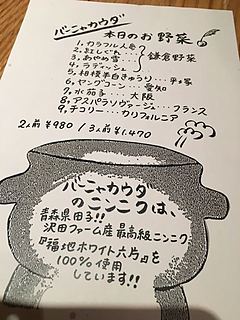 バーニャカウダ
本日のお野菜
1. カラフル人参
2. 紅しぐれ
3. あやめ雪
4. ラディッシュ
鎌倉野菜
5. 相模半白きゅうり… 平塚
6. ヤングコーン… 愛知
7. 水茄子… 大阪
8. アスパラソヴァージュ… フランス
9. チコリー… カリフォルニア
2人前 ¥980 / 3人前 ¥1,470
バーニャカウダ
のニンニクは、
青森県田子!!
沢田ファーム産 最高級ニンニク
『福地ホワイト六片』を
100%使用
しています!!